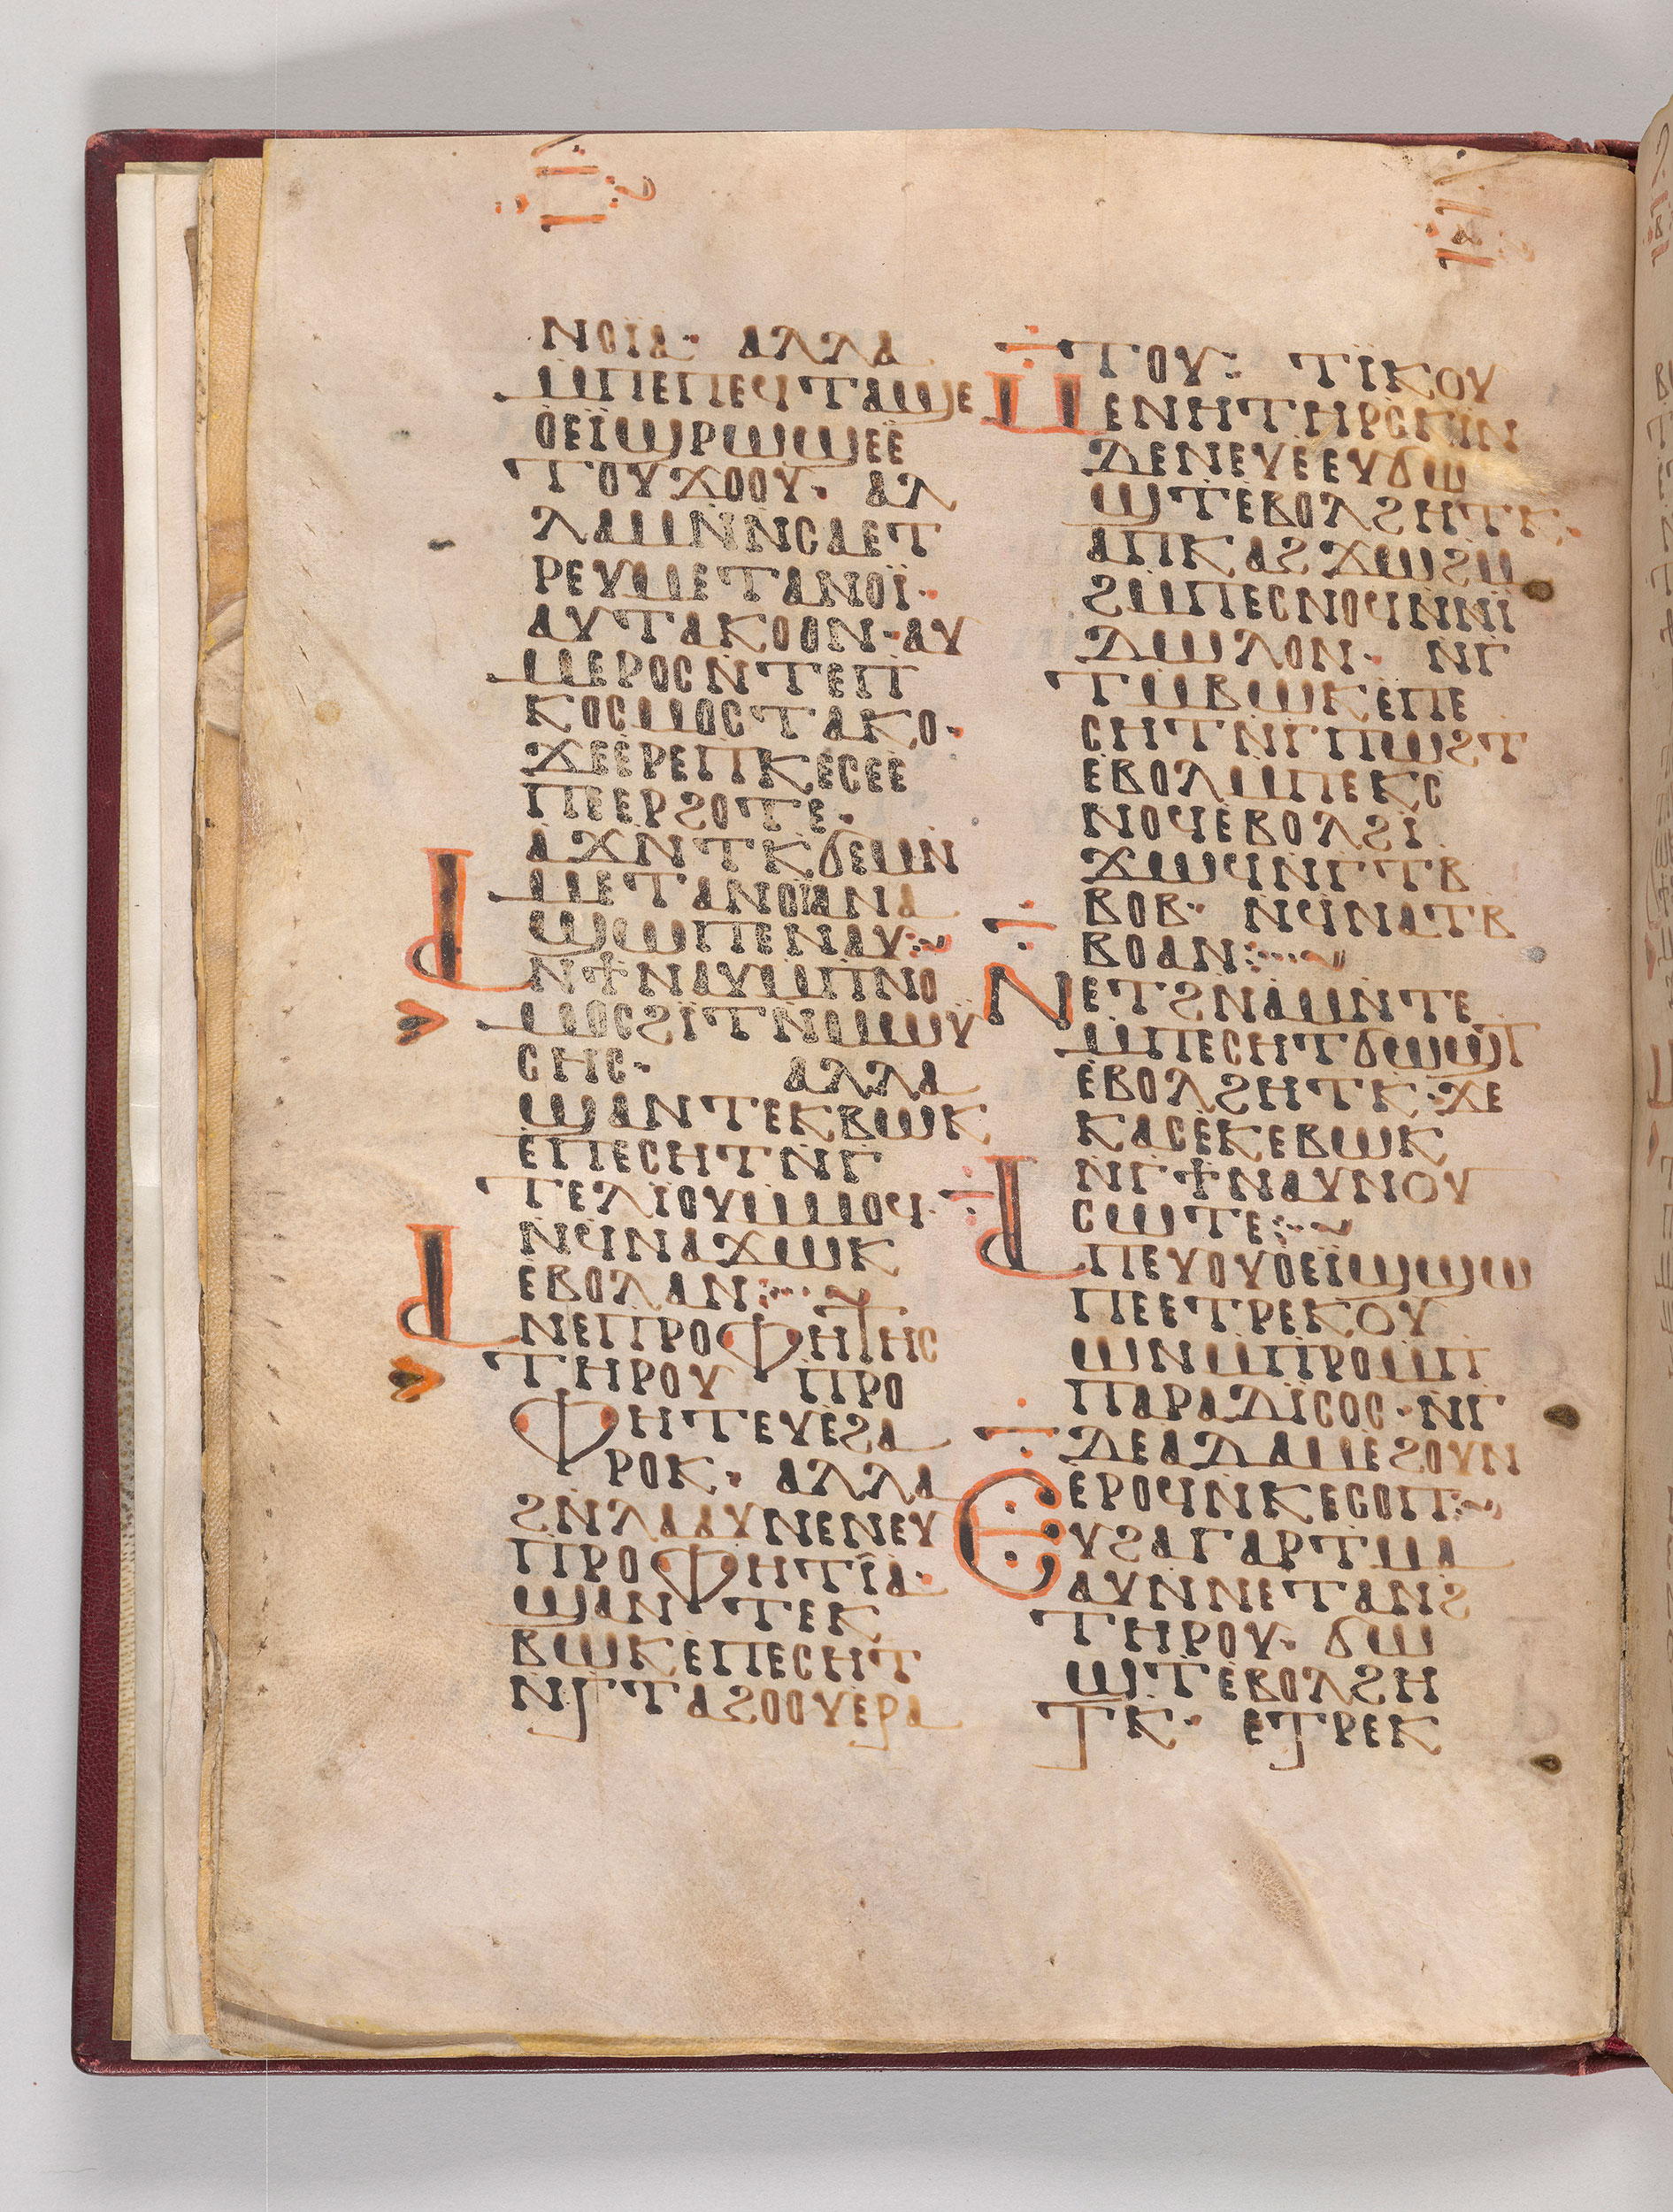 ⲛⲟⲓ̈ⲁ· ⲁⲗⲗⲁ
ⲙ̇ⲡⲉⲡⲉϥⲧⲁϣⲉ
ⲟⲉⲓ̈ϣⲣⲱϣⲉⲉ̇
ⲧⲟⲩϫⲟⲟⲩ· ⲁⲗ
ⲗⲁⲙⲛ̇ⲛ̇ⲥⲁⲉⲧ
ⲣⲉⲩⲙⲉⲧⲁⲛⲟⲓ̈·
ⲁⲩⲧⲁⲕⲟⲟⲛ·ⲁⲩ
ⲙⲉⲣⲟⲥⲛ̇ⲧⲉⲡ
ⲕⲟⲥⲙⲟⲥⲧⲁⲕⲟ·
ϫⲉⲉ̇ⲣⲉⲡⲕⲉⲥⲉⲉ
ⲡⲉⲉⲣϩⲟⲧⲉ·
ⲁϫⲛ̇ⲧⲕϭⲉⲙⲛ̇
ⲙⲉⲧⲁⲛⲟⲓ̈ⲁⲛⲁ
ϣⲱⲡⲉⲛⲁⲩ:~
ⲙⲛϯⲛⲁⲩⲙ̇ⲡⲛⲟ
ⲙⲟⲥϩⲓ̈ⲧⲛ̇ⲙⲱⲩ̈
ⲥⲏⲥ· ⲁⲗⲗⲁ
ϣⲁⲛⲧⲉⲕⲃⲱⲕ
ⲉⲡⲉⲥⲏⲧⲛⲅ̇
ⲧⲉⲗⲓ̈ⲟⲩⲙ̇ⲙⲟϥ·
ⲛϥ̇ⲛⲁϫⲱⲕ
ⲉⲃⲟⲗⲁⲛ:··~
ⲙⲛⲉⲡⲣⲟⲫⲏⲧⲏⲥ
ⲧⲏⲣⲟⲩ ⲡⲣⲟ
ⲫⲏⲧⲉⲩⲉ̇ϩⲁ
ⲣⲟⲕ· ⲁⲗⲗⲁ
ϩⲛ̇ⲗⲁⲁⲩⲛⲉⲛⲉⲩ
ⲡⲣⲟⲫⲏⲧⲓ̈ⲁ·
ϣⲁⲛ ⲧⲉⲕ
ⲃⲱⲕⲉ̇ⲡⲉⲥⲏⲧ
ⲛⲅ̇ⲧⲁϩⲟⲟⲩⲉ̇ⲣⲁ
ⲧⲟⲩ: ⲧⲓ̈ⲕⲟⲩ
ⲙⲉⲛⲏⲧⲏⲣⲥⲕⲓⲛ
ⲇⲉⲛⲉⲩⲉ̇ⲉⲩϭⲱ
ϣⲧⲉ̇ⲃⲟⲗϩⲏⲧⲕ·
ⲁⲡⲕⲁϩϫⲱϩⲙ
ϩⲙ̇ⲡⲉⲥⲛⲟϥⲛ̇ⲛⲓ̈
ⲇⲱⲗⲟⲛ· ⲛⲅ̇
ⲧⲙ̇ⲃⲱⲕⲉ̇ⲡⲉ
ⲥⲏⲧⲛⲅ̇ⲡⲱϩⲧ
ⲉ̇ⲃⲟⲗⲙ̇ⲡⲉⲕⲥ
ⲛⲟϥⲉ̇ⲃⲟⲗϩⲓ̈
ϫⲱϥⲛⲅ̇ⲧⲃ
ⲃⲟⲃ· ⲛϥ̇ⲛⲁⲧⲃ
ⲃⲟⲁⲛ:··~
ⲛⲉⲧϩⲛ̇ⲁⲙⲛ̇ⲧⲉ
ⲙ̇ⲡⲉⲥⲏⲧϭⲱϣⲧ
ⲉ̇ⲃⲟⲗϩⲏⲧⲕ·ϫⲉ
ⲕⲁⲥⲉ̇ⲕⲉⲃⲱⲕ
ⲛⲅ̇ϯⲛⲁⲩⲛⲟⲩ
ⲥⲱⲧⲉ:··~
ⲙⲡⲉⲩⲟⲩⲟⲉⲓ̈ϣϣⲱ
ⲡⲉⲉ̇ⲧⲣⲉⲕⲟⲩ
ⲱⲛⲙ̇ⲡⲣⲟⲙ̇ⲡ
ⲡⲁⲣⲁⲇⲓ̈ⲥⲟⲥ·ⲛⲅ̇
ⲇⲉⲁⲇⲁⲙⲉ̇ϩⲟⲩⲛ
ⲉ̇ⲣⲟϥⲛ̇ⲕⲉⲥⲟⲡ:~
ⲉⲩϩⲁⲅⲁⲣⲧⲙⲁ
ⲁⲩⲛ̇ⲛⲉⲧⲁⲛϩ
ⲧⲏⲣⲟⲩ· ϭⲱ
ϣⲧⲉ̇ⲃⲟⲗϩⲏ
ⲧⲕ· ⲉⲧⲣⲉⲕ